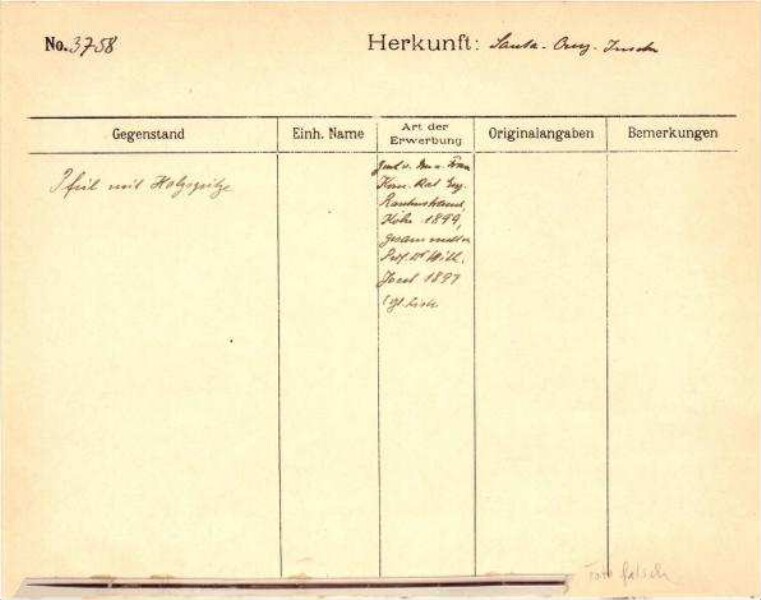 No. 3758
Herkunft: Santa-Cruz-Inseln
Gegenstand
Einh. Name
Art der Erwerbung
Originalangaben
Bemerkungen
Pfeil mit Holzspitze
Gesch. v. Frau
Kom. Rat Eug.
Rautenstrauch,
Köln 1899,
gesammelt v.
Prof. Dr Wilh.
Joest 1897
falsch